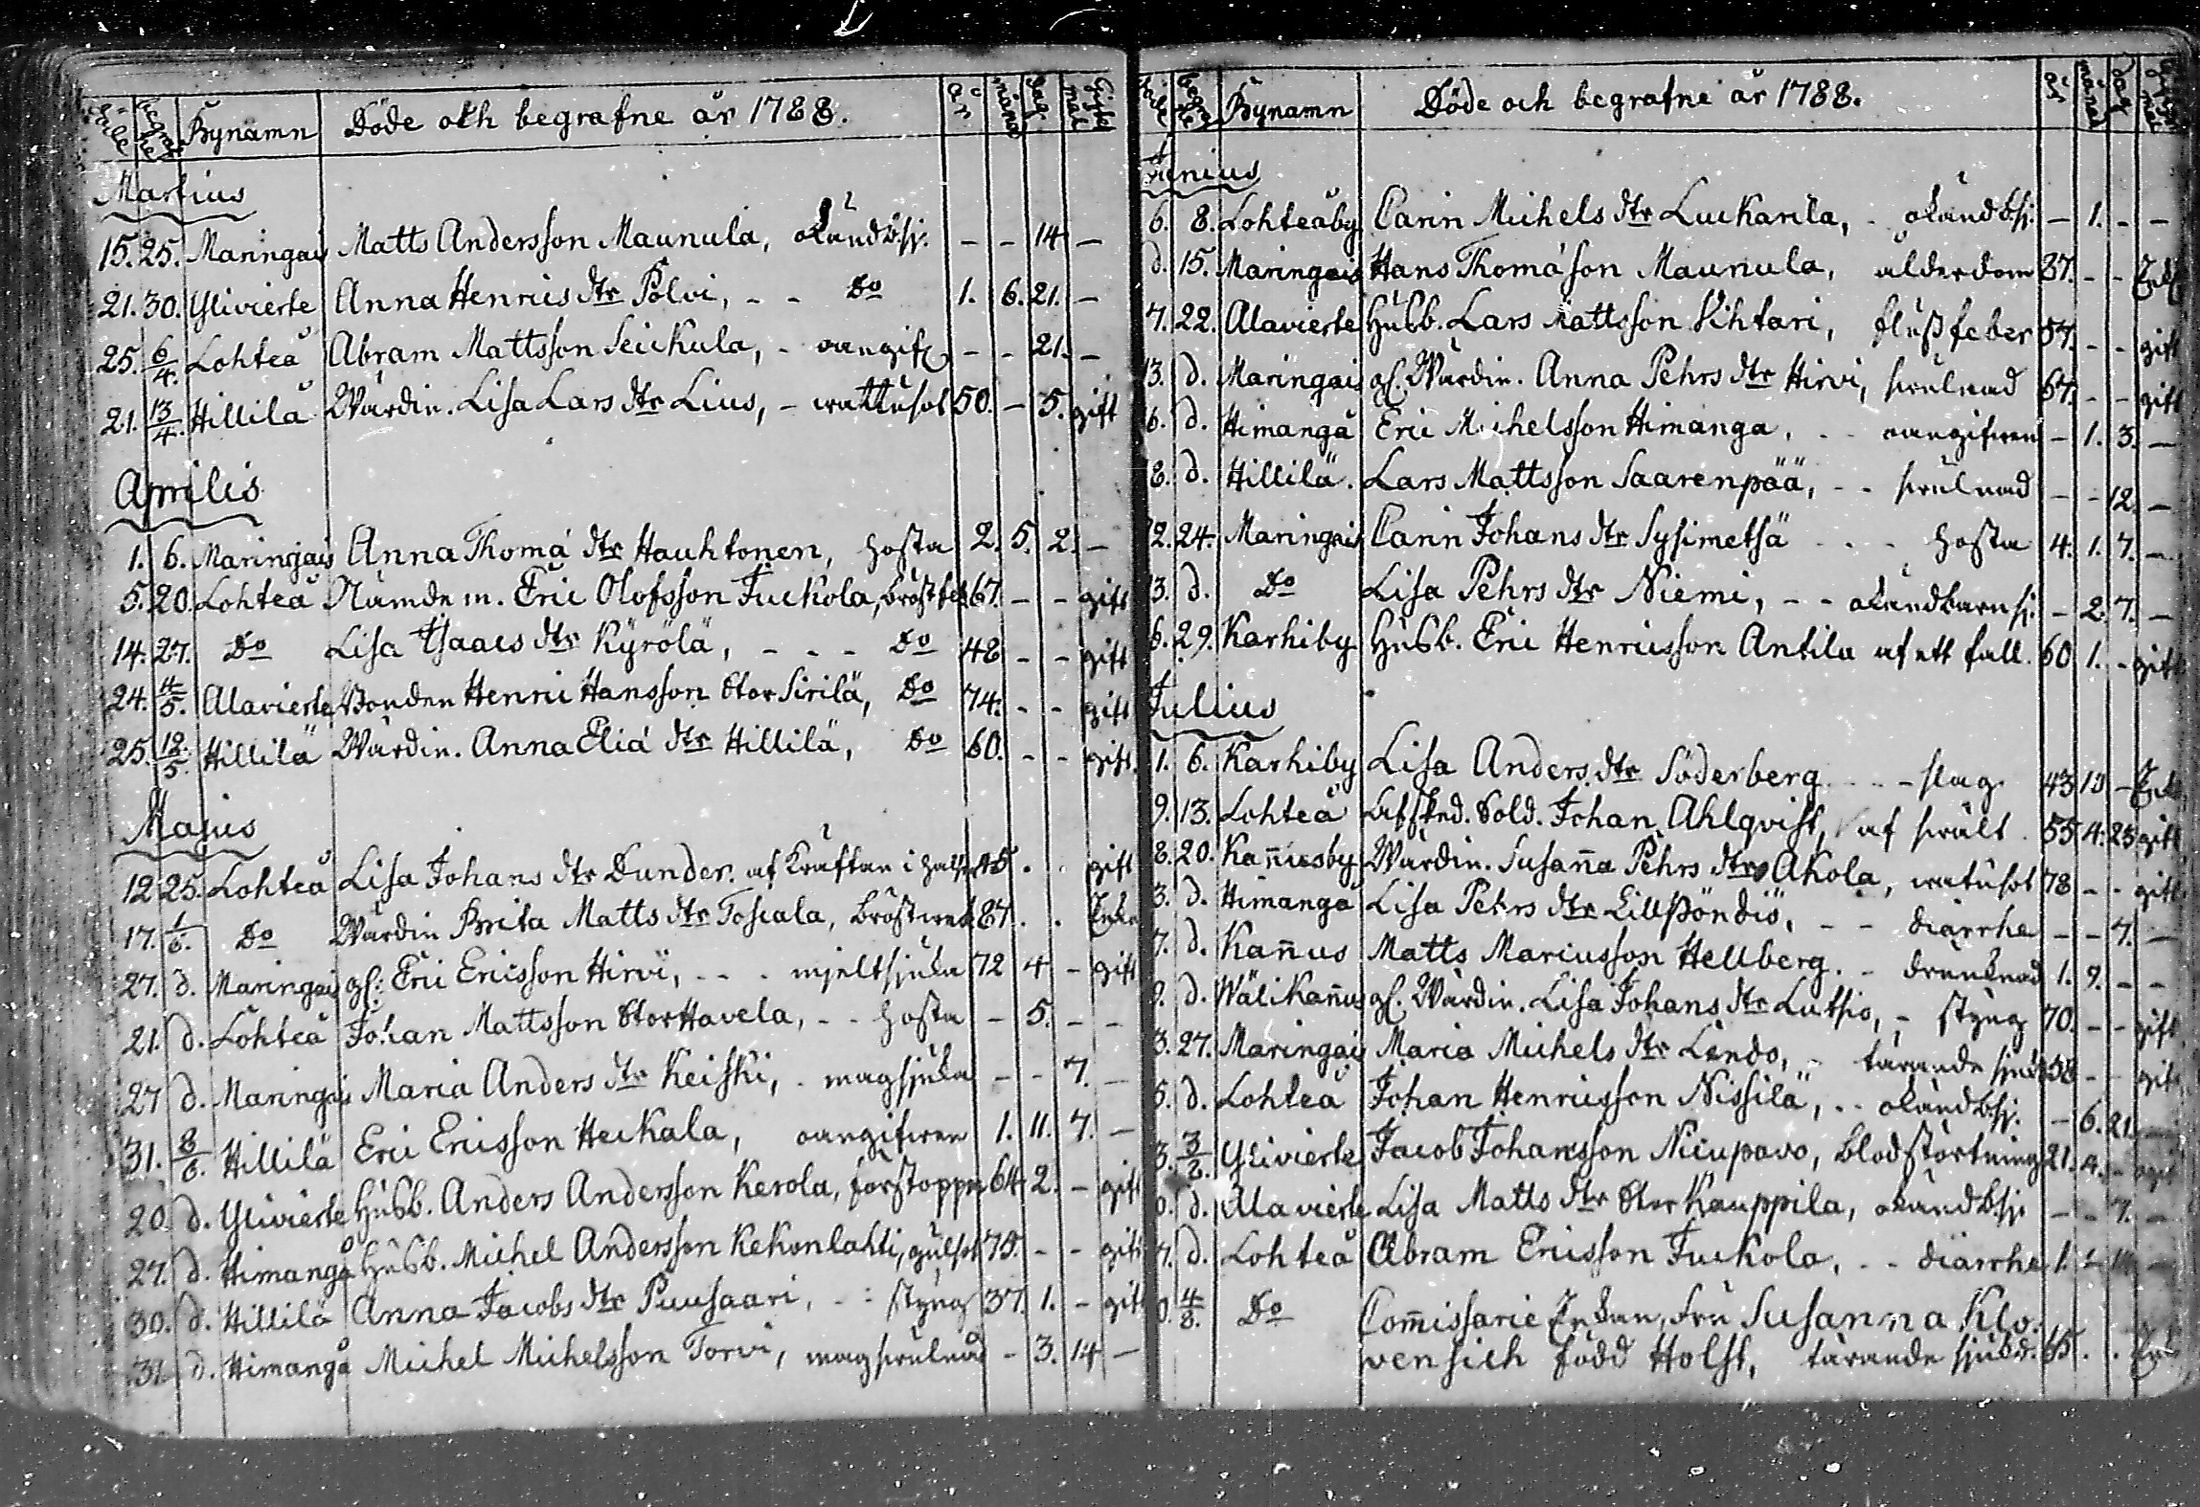 Döde begrafne Bynamn Döde och begrafne år 1788. år månad dag Giftermål
Martius
15. 25. Maringais Matts Andersson Maunula, okänd bsj. - - 14 -
21. 30. Ylivierte Anna Henrics dtr Pölvi, - - Do 1. 6. 21. -
25. 6/4. Lohteå Abram Mattsson Seickula, - oangift - - 21. -
21. 13/4. Hillilä Wärdin. Lisa Lars dtr Lius, - wattusot 50. - 5. gift
Aprilis
1. 6. Maringais Anna Thomæ dtr Hauhtonen, hosta 2. 5. 2. -
5. 20. Lohteå Nämdem. Eric Olofsson Juckola, bröstfeb 67. - - gift
14. 27. Do Lisa Isaacs dtr Kyrölä, - - - Do 48 - - gift
24. 4/5. Alavierte Bonden Henric Hansson Stor Sirilä, Do 74. - - gift
25. 12/5. Hillilä Wärdin. Anna Eliæ dtr Hillilä, Do 60. - - gift.
Majus
12 25. Lohteå Lisa Johans dtr Dunder. af kräftan i halsen 45 . . gift
17. 1/6. Do Wärdin Brita Matts dtr Toscala, bröstwerk 87. . . Enka
27. d. Maringais gl: Eric Ericsson Hirvi, - - - mjeltsjuka 72 4 - gift
21. d. Lohteå Johan Mattsson StorHavela, - - hosta - 5. - -
27 d. Maringais Maria Anders dtr Keiski, . magsjuka - - 7. -
31. 8/6. Hillilä Eric Ericsson Heikala, oangifwen 1. 11. 7. -
20. d. Ylivierte Husb. Anders Andersson Kerola, förstoppn 64. 2. - gift
27. d. Himangå Husb. Michel Andersson Kekonlahti, gulsot 75. - - gift
30. d. Hillilä Anna Jacobs dtr Puusaari, - - styng 37. 1. - gift
31 d. Himangå Michel Michelsson Torvi, magswulnad - 3. 14 -
Döde begrafne Bynamn Döde och begrafne år 1788. år månad dag
Junius
6. 8. Lohteåby Carin Michels dtr Luckarila, - okänd bsj. - 1. - -
d. 15. Maringais Hans Thomæson Maunula, ålderdom 87. - - Enkl
7. 22. Alavierte Husb. Lars Mattsson Vihtari, flussfeber 57. - - gift
13. d. Maringais gl. Wärdin. Anna Pehrs dtr Hirvi, swulnad 67. - - gift
16. d. Himangå Eric Michelsson Himanga, - - oangifwen - 1. 3. -
8. d. Hillilä. Lars Mattsson Saarenpää, - - swulnad - - 12. -
2. 24. Maringais Carin Johans dtr Sysimetsä - - - hosta 4. 1. 7. -
3. d. Do Lisa Pehrs dtr Niemi, - - okänd barnsj. - 2. 7. -
6. 29. Karhiby Husb. Eric Henricsson Antila af ett fall. 60 1. - gift
Julius
1. 6. Karhiby Lisa Anders dtr Söderberg - - - slag 43 10 - Enk
9. 13. Lohteå Afsked. Sold. Johan Ahlqvist, af swält. 55. 4. 25 gift
8. 20. Kan̄usby Wärdin. Susan̄a Pehrs dtr Akola, watusot 78 - - gift
3. d. Himangå Lisa Pehrs dtr LillPöndiö, - - diarrhe - - 7. -
7. d. Kan̄us Matts Mariusson Hellberg. - drunknad 1. 9. - -
9. d. Wälikan̄us gl. Wärdin. Lisa Johans dtr Lutsio, - styng 70. - - gift
3. 27. Maringais Maria Michels dtr Lindo, - tärande sjuk 58 - - gift
5. d. Lohteå Johan Henricsson Nissilä, - - okänd bsj. - 6. 21. -
3. 3/8. Ylivierte Jacob Johansson Nicupavo, blodstörtning 21. 4. - ogift
0. d. Alavierte Lisa Matts dtr Stor Kauppila, okänd bsj. - - 7. -
7. d. Lohteå Abram Ericsson Juckola, - - diarrhe 1. - 14 -
0. 4/8. Do Com̄issarie Enkan, Fru Susanna Klo-
wensich född Holst, tärande sjukd. 65 . . Enk